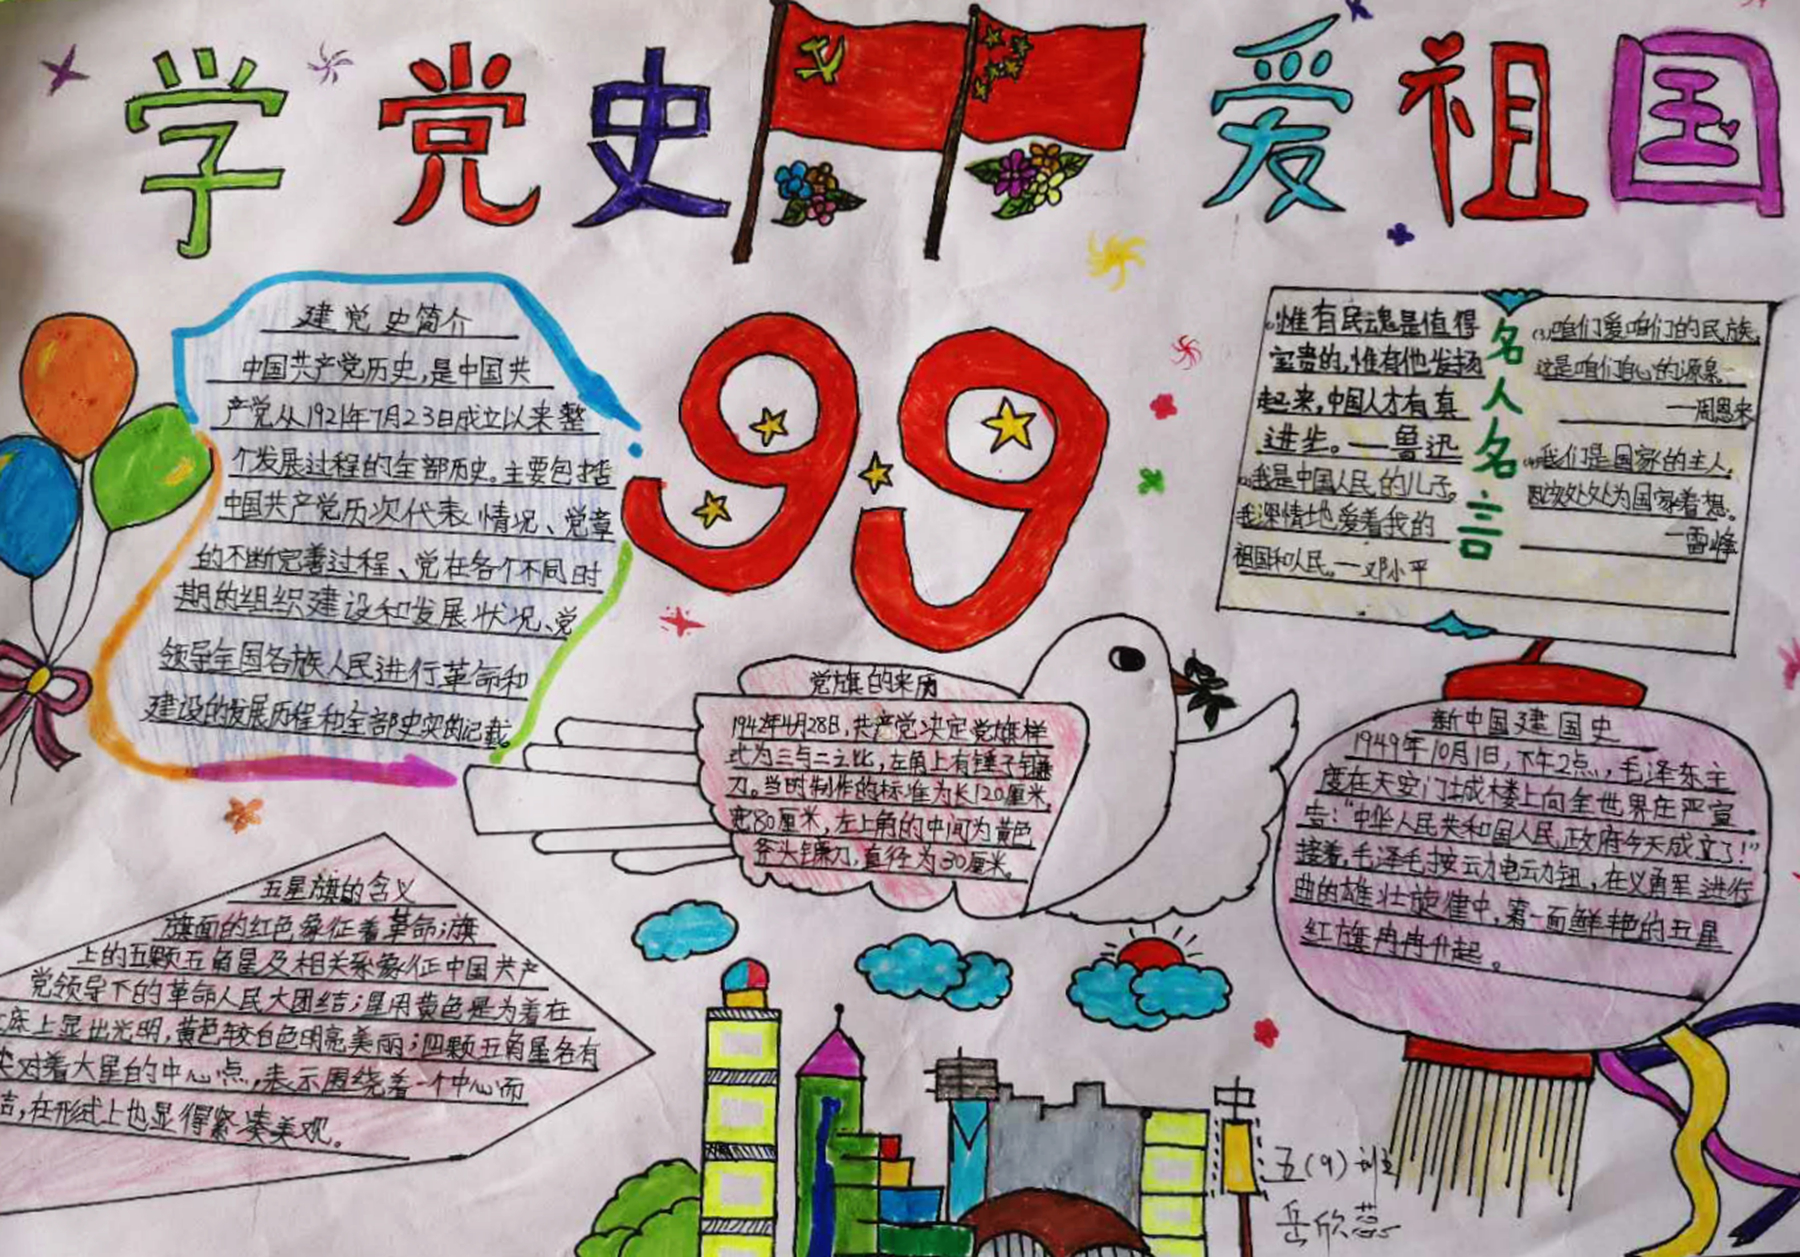 学党史 爱祖国
建党史简介
中国共产党历史,是中国共
产党从1921年7月23日成立以来整
个发展过程的全部历史。主要包括
中国共产党历次代表情况、党章
的不断完善过程、党在各个不同时
期的组织建设和发展状况、党
领导全国各族人民进行革命和
建设的发展历程和全部史实的记载。
99
名人名言
(1)惟有民魂是值得
宝贵的,惟有他发扬
起来,中国人才有真
进步。——鲁迅
(2)我是中国人民的儿子。
我深情地爱着我的
祖国和人民。—邓小平
(3)咱们爱咱们的民族,
这是咱们自心的源泉。
—周恩来
(4)我们是国家的主人,
应该处处为国家着想。
—雷锋
党旗的来历
1942年4月28日,共产党决定党旗样
式为三与二之比,左角上有锤子镰
刀。当时制作的标准为长120厘米,
宽80厘米,左上角的中间为黄色
斧头镰刀,直径为30厘米。
新中国建国史
1949年10月1日,下午2点,毛泽东主
度在天安门城楼上向全世界庄严宣
告:“中华人民共和国人民政府今天成立了!”
接着,毛泽毛按云力电云力钮,在义勇军进行
曲的雄壮旋律中,第一面鲜艳的五星
红旗冉冉升起。
五星旗的含义
旗面的红色象征着革命;旗
上的五颗五角星及相关系象征中国共产
党领导下的革命人民大团结;星用黄色是为着在
床上显出光明,黄色较白色明亮美丽;四颗五角星各有
尖对着大星的中心点,表示围绕着一个中心而
结,在形式上也显得紧凑美观。
中
五(9)班
岳欣蕊